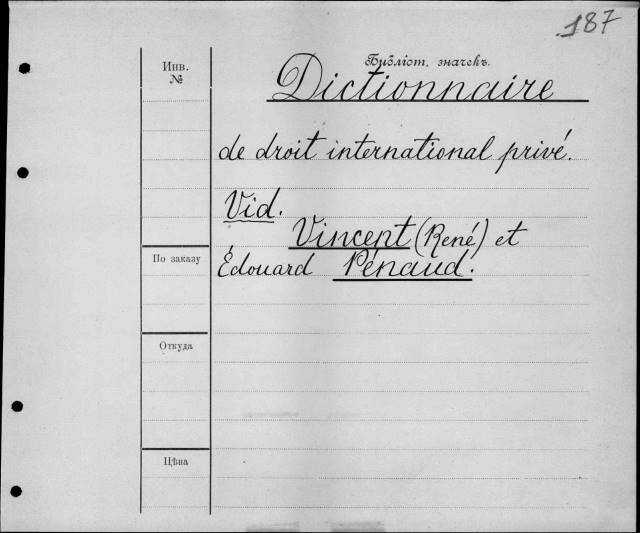 187
Инв.
№
Библіот. значекъ.
Dictionnaire
de droit international privé.
Vid.
Vincent (René) et
Édouard Pénaud.
По заказу
Откуда
Цѣна